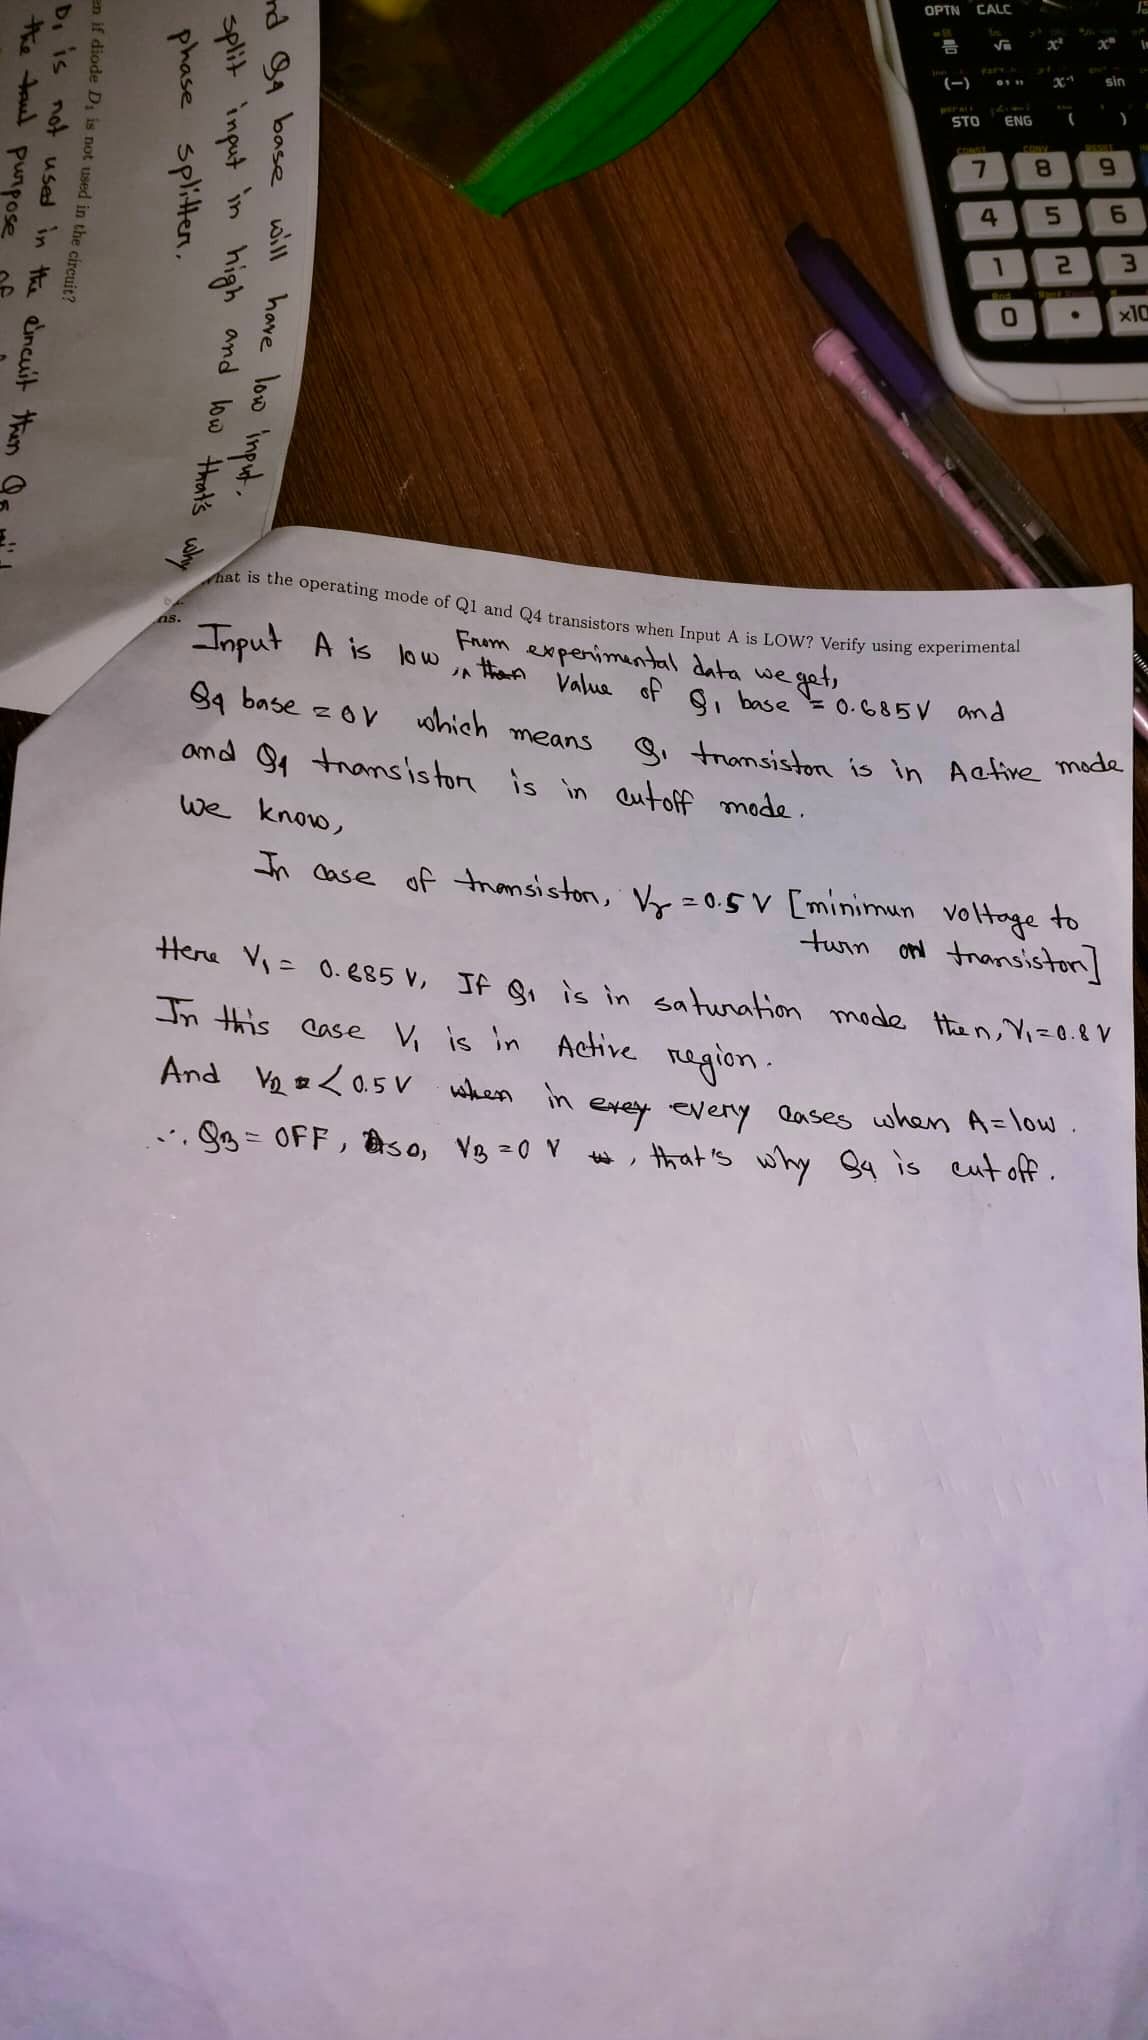 nd Q4 base will have low input.
split input in high and low that's why
phase splitter.
en if diode D1 is not used in the circuit?
D1 is not used in the circuit then Q5 will
the taut purpose of
OPTN CALC
(−) x² sin
STO ENG ( )
7 8 9
4 5 6
1 2 3
0 . x10
hat is the operating mode of Q1 and Q4 transistors when Input A is LOW? Verify using experimental
ns.
Input A is low, From experimental data we get,
in than Value of Q1 base = 0.685V and
Q4 base = 0V which means Q1 transistor is in Active mode
and Q4 transistor is in cutoff mode.
we know,
In case of transistor, Vγ = 0.5 V [minimun voltage to
turn on transistor]
Here V1 = 0.685 V, If Q1 is in saturation mode then, V1 = 0.8 V
In this case V1 is in Active region.
And V2 = < 0.5 V when in evey every cases when A = low.
∴ Q3 = OFF, Also, V3 = 0 V, that's why Q4 is cut off.